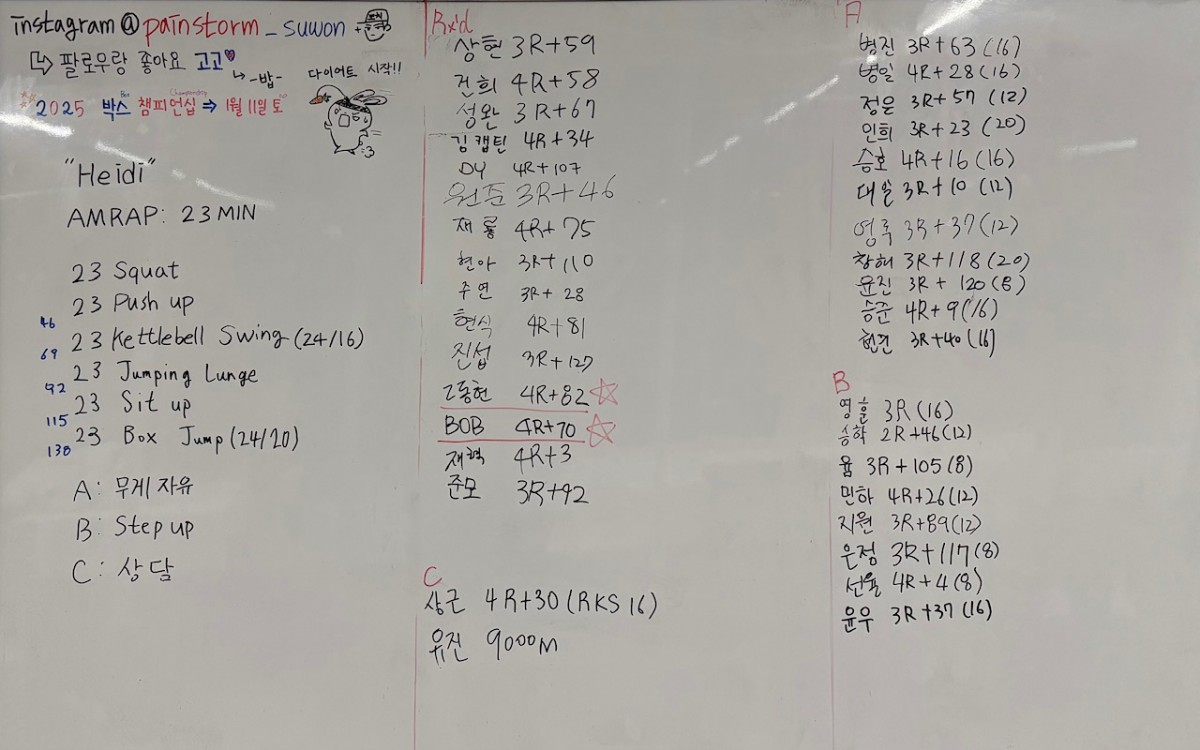 instagram@painstorm_suwon
↳ 팔로우랑 좋아요 고고♥
↳ -밥-
다이어트 시작!!
2025 박스 챔피언십 ⇒ 1월 11일 토
Box Championship
:3
"Heidi"
AMRAP: 23 MIN
23 Squat
23 Push up
46 23 Kettlebell Swing (24/16)
69 23 Jumping Lunge
92 23 Sit up
115 23 Box Jump (24/20)
138
A: 무게 자유
B: Step up
C: 상담
Rx'd
상현 3R+59
건희 4R+58
성완 3R+67
김캡틴 4R+34
DY 4R+107
원준 3R+46
재룡 4R+75
현아 3R+110
주연 3R+28
현식 4R+81
진섭 3R+127
김동현 4R+82 ☆
BOB 4R+70 ☆
재혁 4R+3
준모 3R+92
C
상근 4R+30 (RKS 16)
유진 9000M
A
병진 3R+63 (16)
병일 4R+28 (16)
정은 3R+57 (12)
인희 3R+23 (20)
승호 4R+16 (16)
대일 3R+10 (12)
영주 3R+37 (12)
창해 3R+118 (20)
윤진 3R+120 (8)
승준 4R+9 (16)
현건 3R+40 (16)
B
영훈 3R (16)
승하 2R+46 (12)
윰 3R+105 (8)
민하 4R+26 (12)
지원 3R+89 (12)
은정 3R+117 (8)
선율 4R+4 (8)
윤우 3R+37 (16)